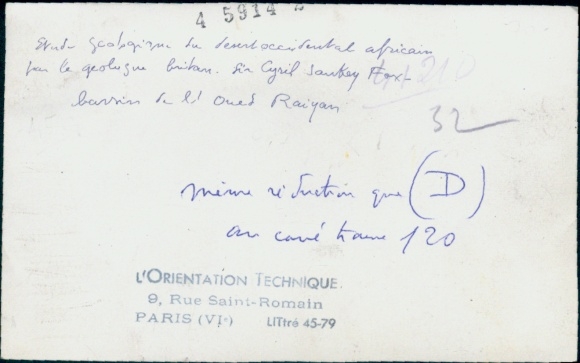 4 5914
Etude geologique du desert occidental africain
par le geologue britan. Sir Cyril Sankey Fox
bassin de l'Oued Raiyan
32
même réduction que (D)
au carré trame 120
L'ORIENTATION TECHNIQUE.
9, Rue Saint-Romain
PARIS (VIe) LITtré 45-79